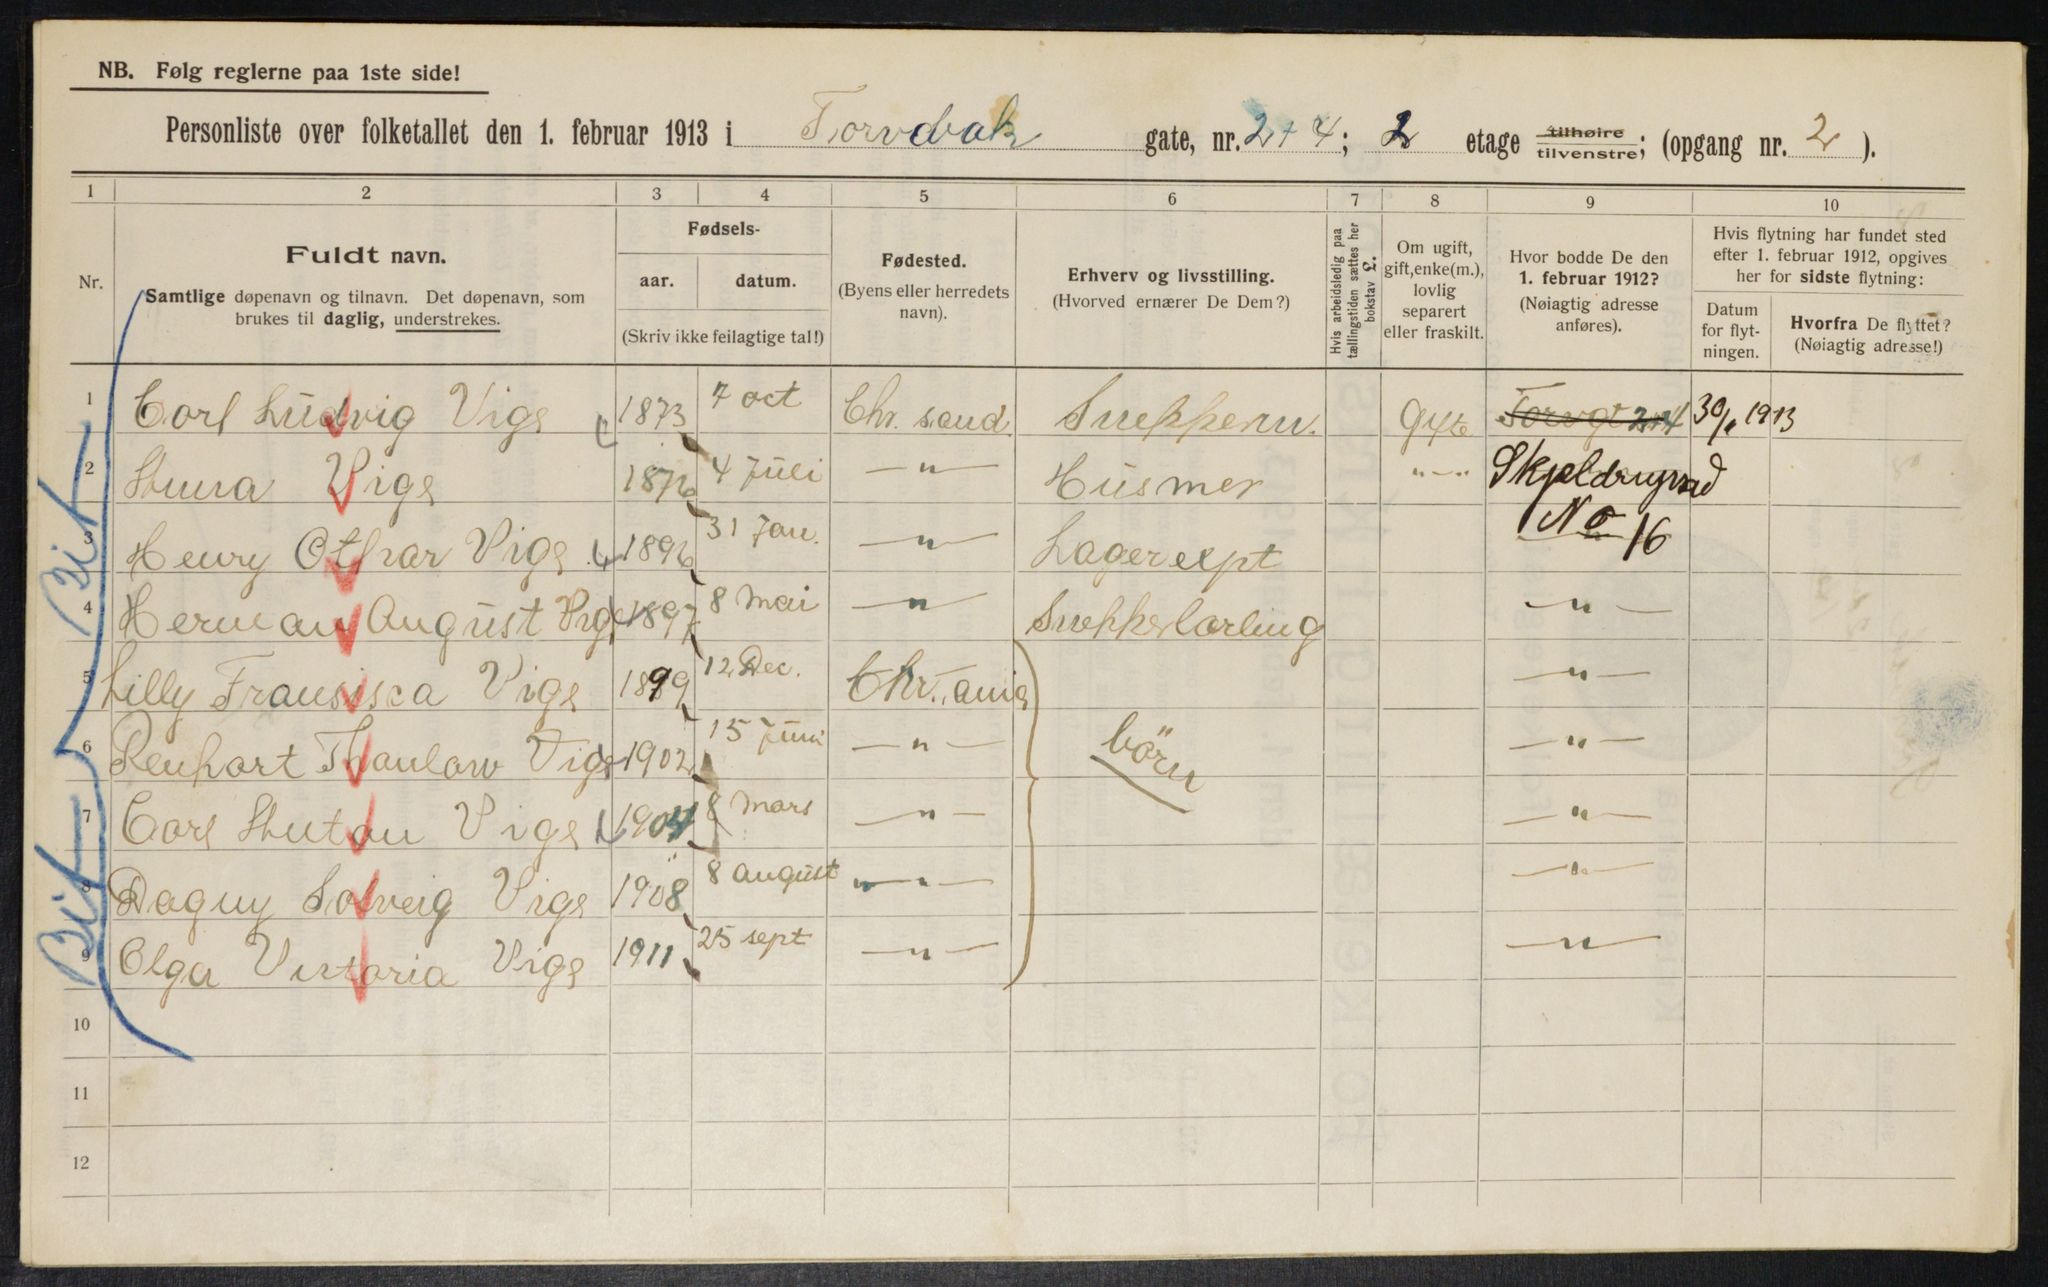 NB. Følg reglerne paa 1ste side!
Personliste over folketallet den 1. februar 1913 i Torvbak gate, nr. 2+4; 2 etage tilhøire tilvenstre; (opgang nr. 2).
1 2 3 4 5 6 7 8 9 10
Nr.
Fuldt navn.
Samtlige døpenavn og tilnavn. Det døpenavn, som
brukes til daglig, understrekes.
Fødsels-
aar. datum.
(Skriv ikke feilagtige tal!)
Fødested.
(Byens eller herredets
navn).
Erhverv og livsstilling.
(Hvorved ernærer De Dem?)
Hvis arbeidsledig paa
tællingstiden sættes her
bokstav L.
Om ugift,
gift, enke(m.),
lovlig
separert
eller fraskilt.
Hvor bodde De den
1. februar 1912?
(Nøiagtig adresse
anføres).
Hvis flytning har fundet sted
efter 1. februar 1912, opgives
her for sidste flytning:
Datum
for flyt-
ningen.
Hvorfra De flyttet?
(Nøiagtig adresse!)
1 Carl Ludvig Vigs 1873 7 oct Chr. sand. Snekkerm. Gifte Torvgt 2+4 30/1 1913
2 Vigs 1876 4 Juli —"— Husmor "—" 
No 16
3 Henry Othar Vigs 1896 31 Jan. —"— Lagerexpt
4 Herman August Vigs 1897 8 Mai —"— Snekkerlærling —"—
5 Lilly Fransisca Vigs 1899 12 Dec. Chr.ania —"—
6 Thaulow Vigs 1902 15 Juni —"— börn —"—
7 Carl Vigs 1904 8 Mars —"— —"—
8 Dagny Solveig Vigs 1908 8 august —"— —"—
9 Olga Victoria Vigs 1911 25 sept —"— —"—
10
11
12
Bit Bit